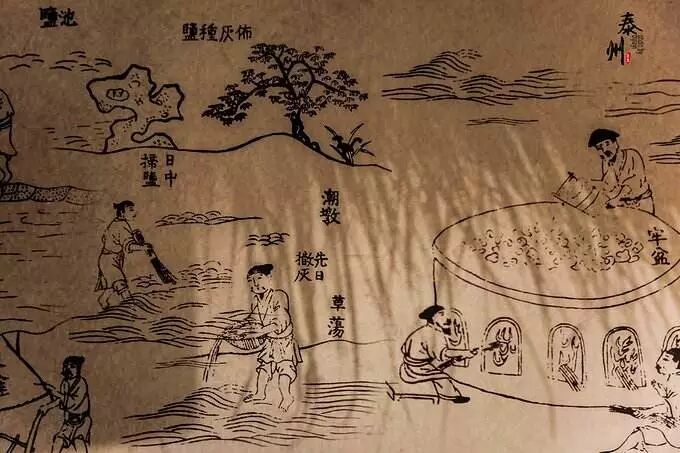 池鹽
佈灰種鹽
泰州
日中
掃鹽
潮
先日
撒灰
草蕩
牢盆